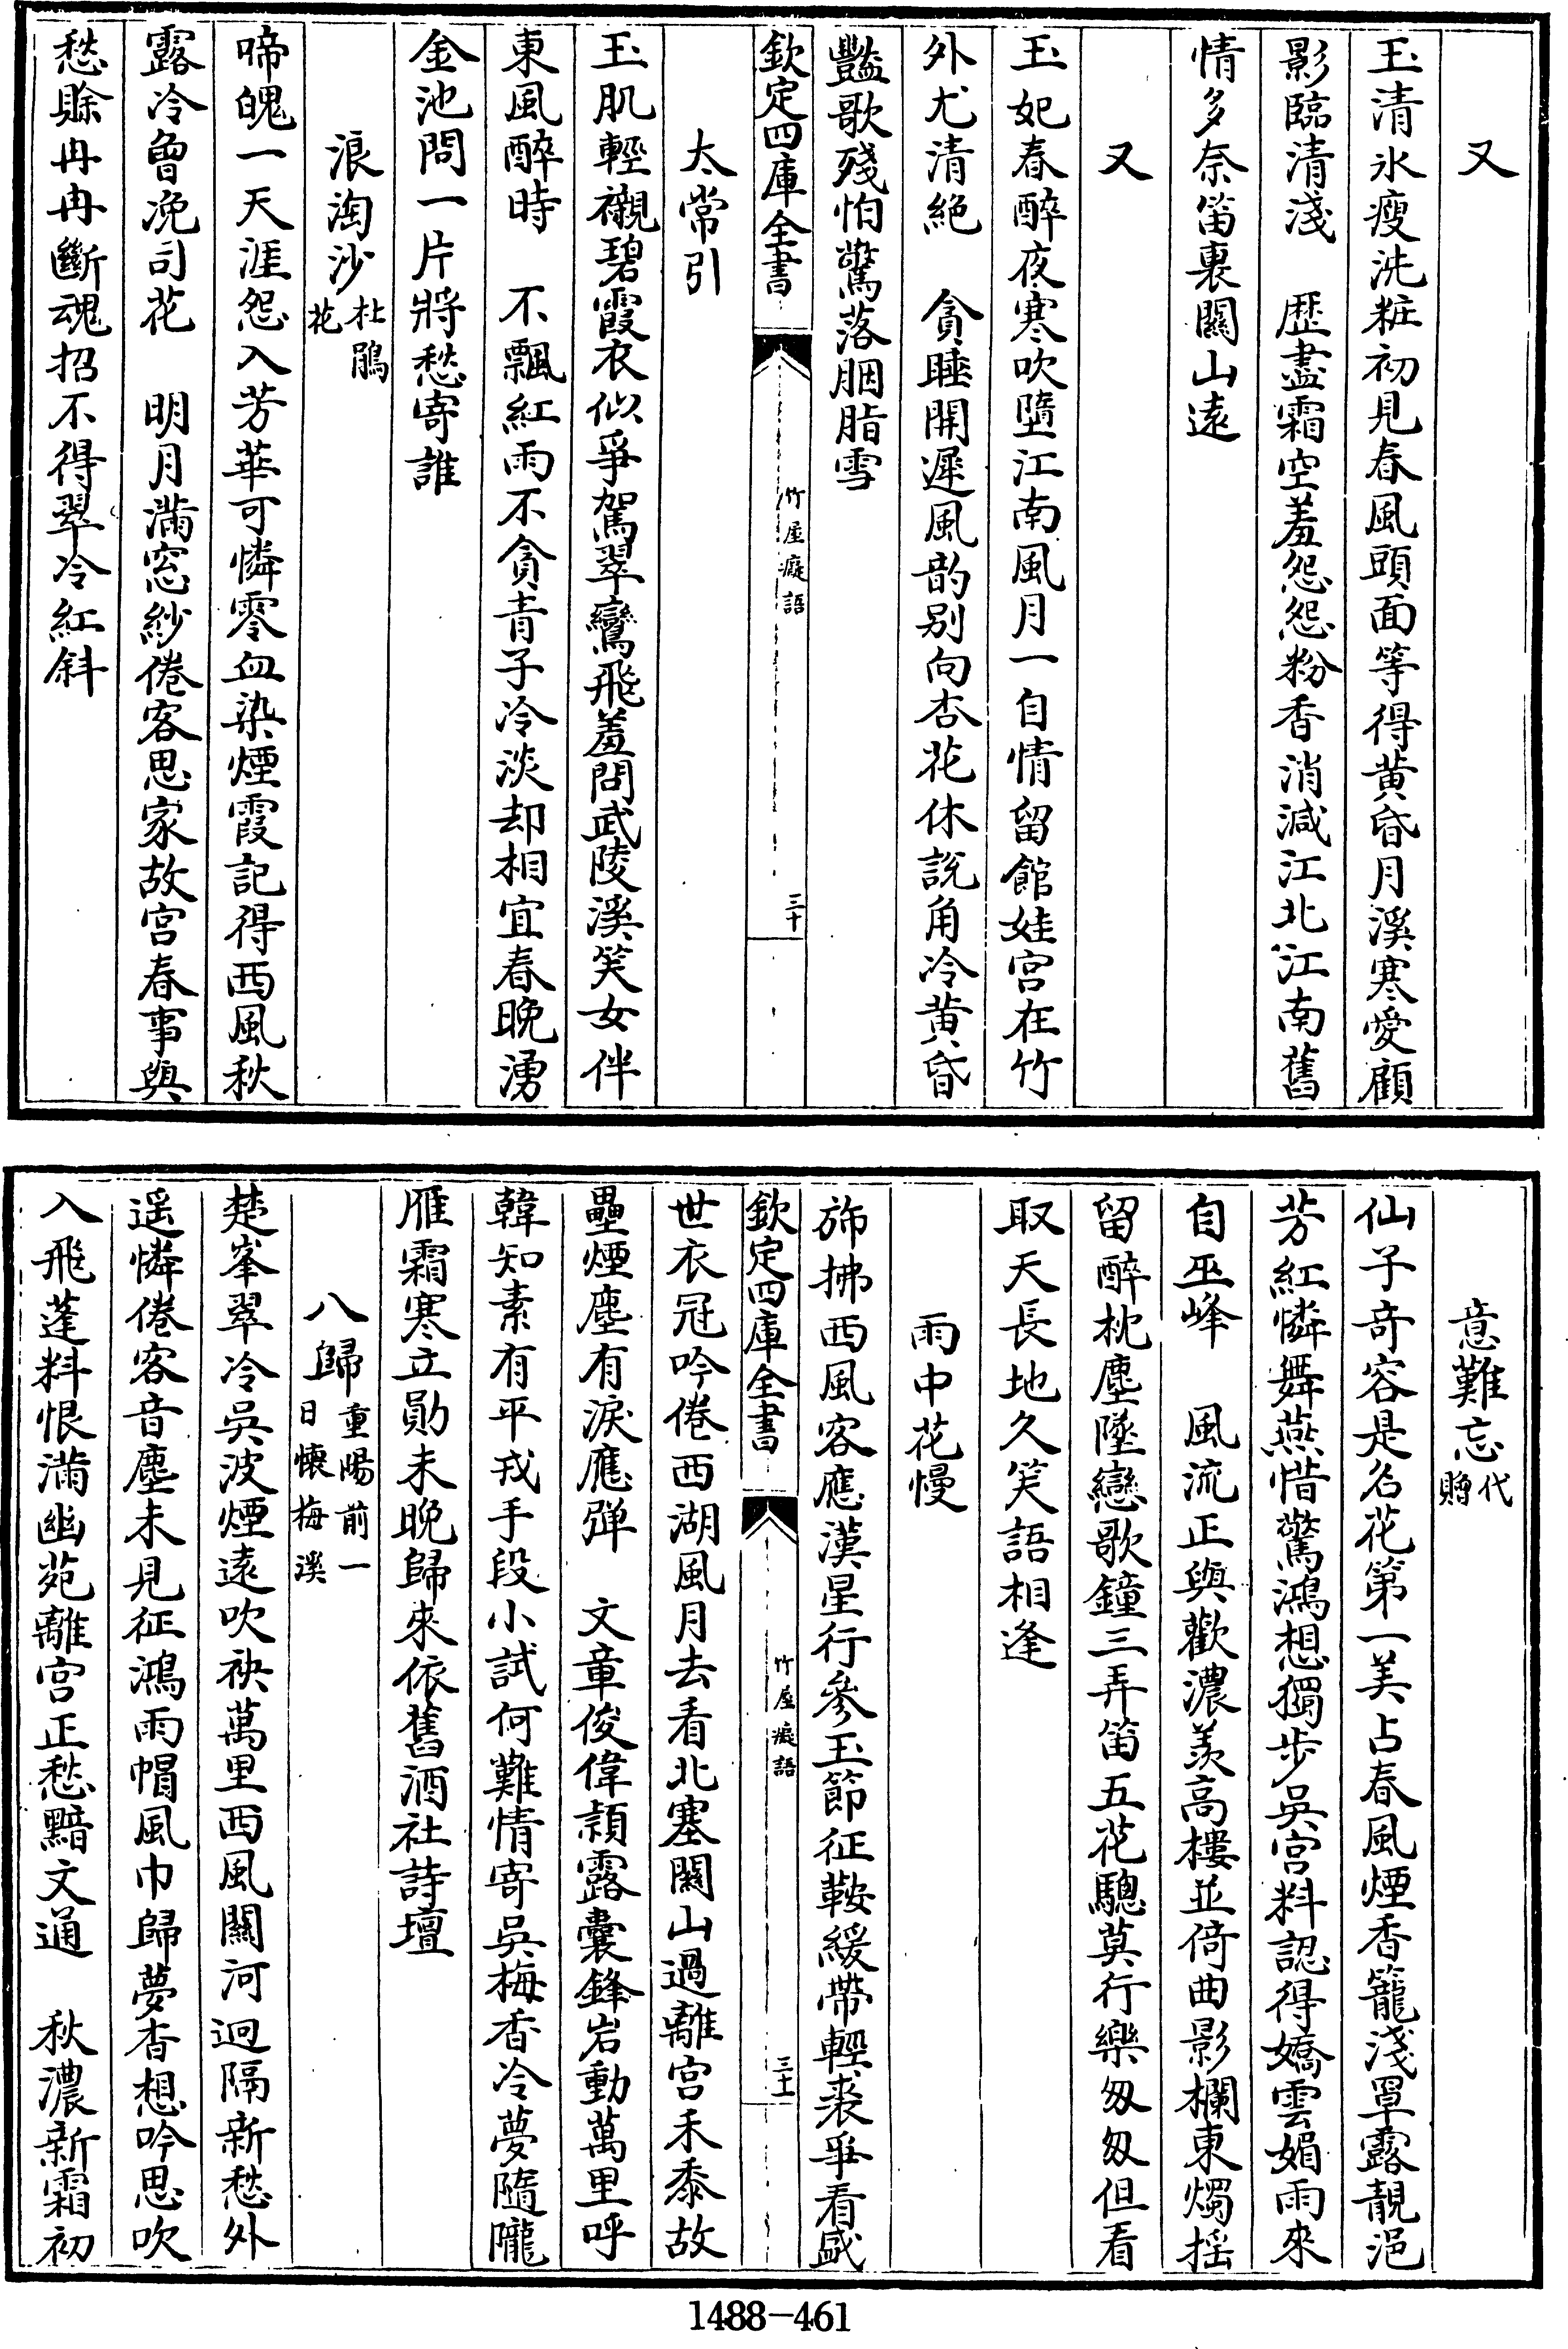 又
玉清氷瘦洗粧初見春風頭面等得黄昏月溪寒愛顧
影臨清淺　歴盡霜空羞怨怨粉香消減江北江南舊
情多奈笛裏關山遠
又
玉妃春醉夜寒吹墮江南風月一自情留館娃宫在竹
外尤清絶　貪睡開遲風韵别向杏花休說角冷黄昏
豔歌殘怕驚落胭脂雪
欽定四庫全書
竹屋癡語
三十
太常引
玉肌輕襯碧霞衣似爭駕翠鸞飛羞問武陵溪笑女伴
東風醉時　不飄紅雨不貪青子冷淡却相宜春晚湧
金池問一片將愁寄誰
浪淘沙杜鵑花
啼魄一天涯怨入芳華可憐零血染煙霞記得西風秋
露冷曾浼司花　明月滿窓紗倦客思家故宫春事與
愁賖冉冉斷魂招不得翠冷紅斜
意難忘代贈
仙子奇容是名花第一美占春風煙香籠淺罩露靚浥
芳紅憐舞燕惜驚鴻想獨步吳宫料認得嬌雲媚雨來
自巫峰　風流正與歡濃羡高樓並倚曲影欄東燭揺
留醉枕塵墜戀歌鐘三弄笛五花驄莫行樂匆匆但看
取天長地久笑語相逢
雨中花慢
斾拂西風客應漢星行參玉節征鞍緩帶輕裘爭看盛
欽定四庫全書
竹屋癡語
三十一
世衣冠吟倦西湖風月去看北塞關山過離宫禾黍故
壘煙塵有淚應弹　文章俊偉頴露囊鋒岩動萬里呼
韓知素有平戎手段小試何難情寄吳梅香冷夢隨隴
雁霜寒立勛未晚歸來依舊酒社詩壇
八歸重陽前一日懷梅溪
楚峯翠冷吳波煙遠吹袂萬里西風關河迥隔新愁外
遥憐倦客音塵未見征鴻雨帽風巾歸夢杳想吟思吹
入飛蓬料恨滿幽苑離宫正愁黯文通　秋濃新霜初
1488-461